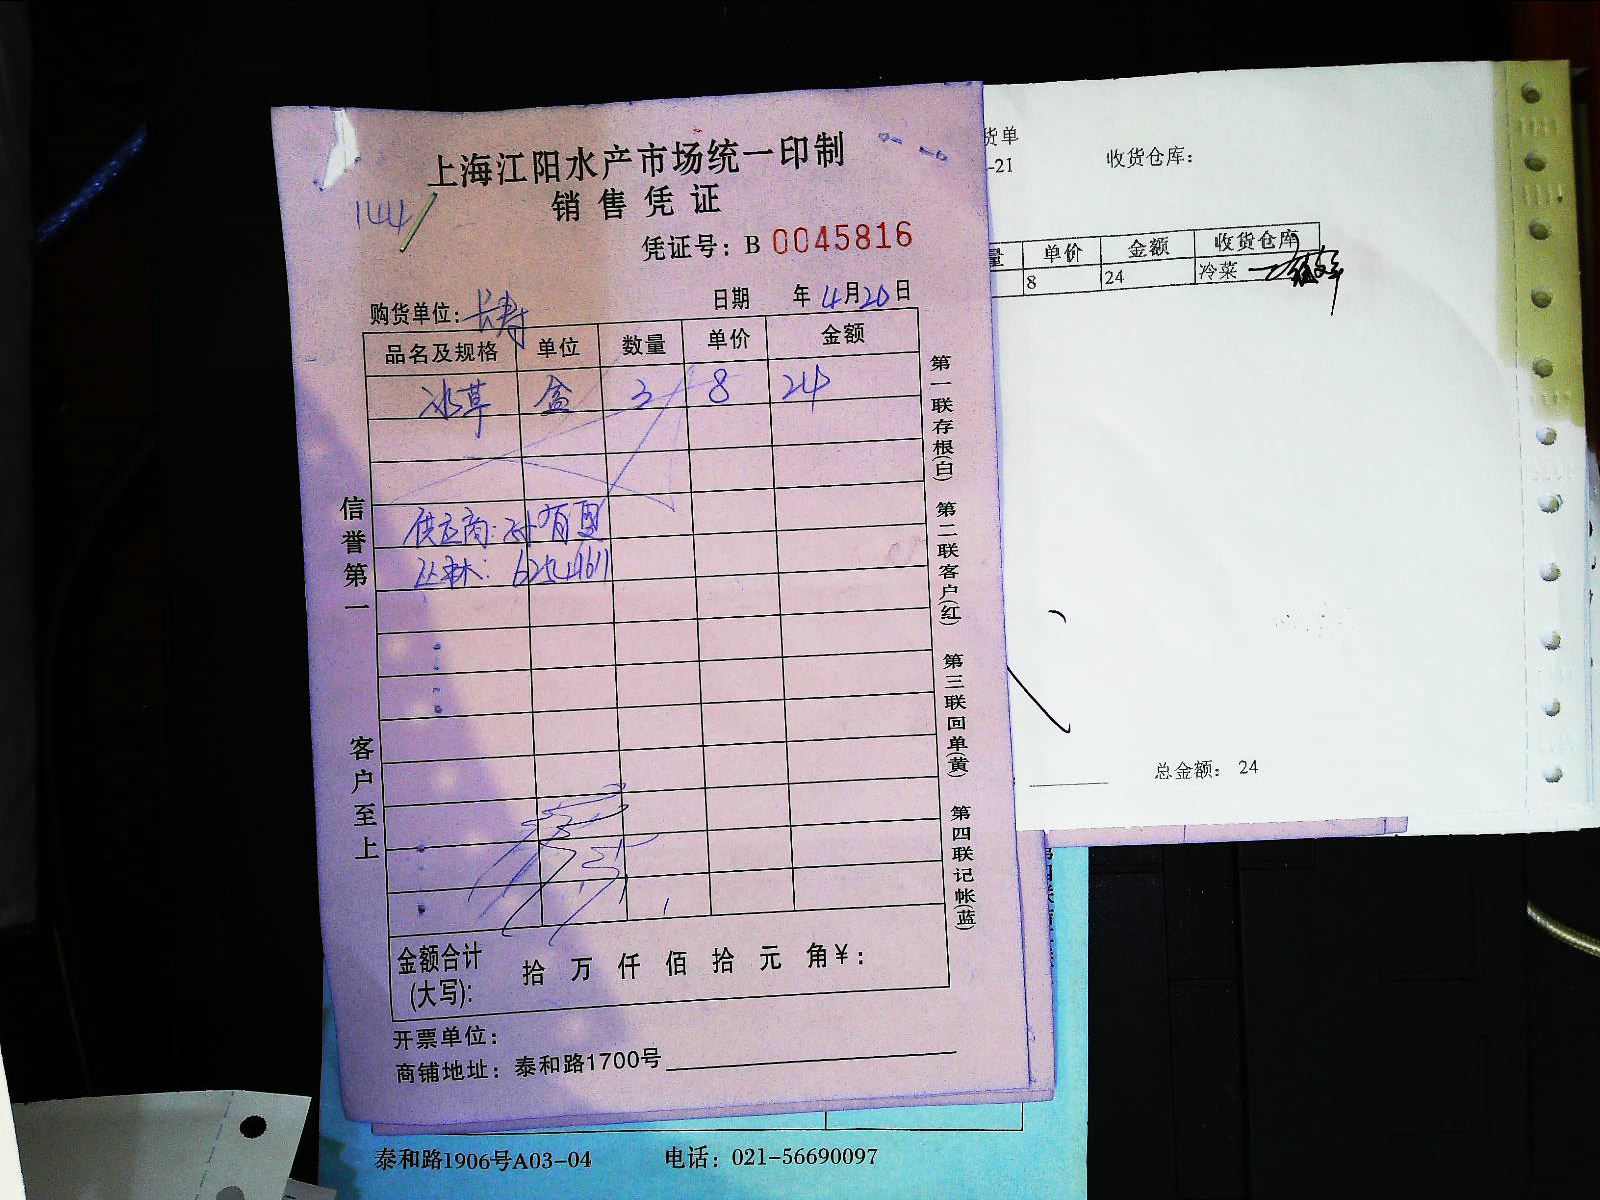 上海江阳水产市场统一印制
销售凭证
144
凭证号：B 0045816
购货单位：长寿 日期 年4月20日
品名及规格 单位 数量 单价 金额
冰草 盒 3 8 24
供应商：孙有国
电话：62541611
信誉第一
客户至上
第一联存根(白) 第二联客户(红) 第三联回单(黄) 第四联记帐(蓝)
金额合计(大写)： 拾 万 仟 佰 拾 元 角 ¥：
开票单位：
商铺地址：泰和路1700号
货单
-21 收货仓库：
量 单价 金额 收货仓库
8 24 冷菜
总金额： 24
泰和路1906号A03-04 电话：021-56690097